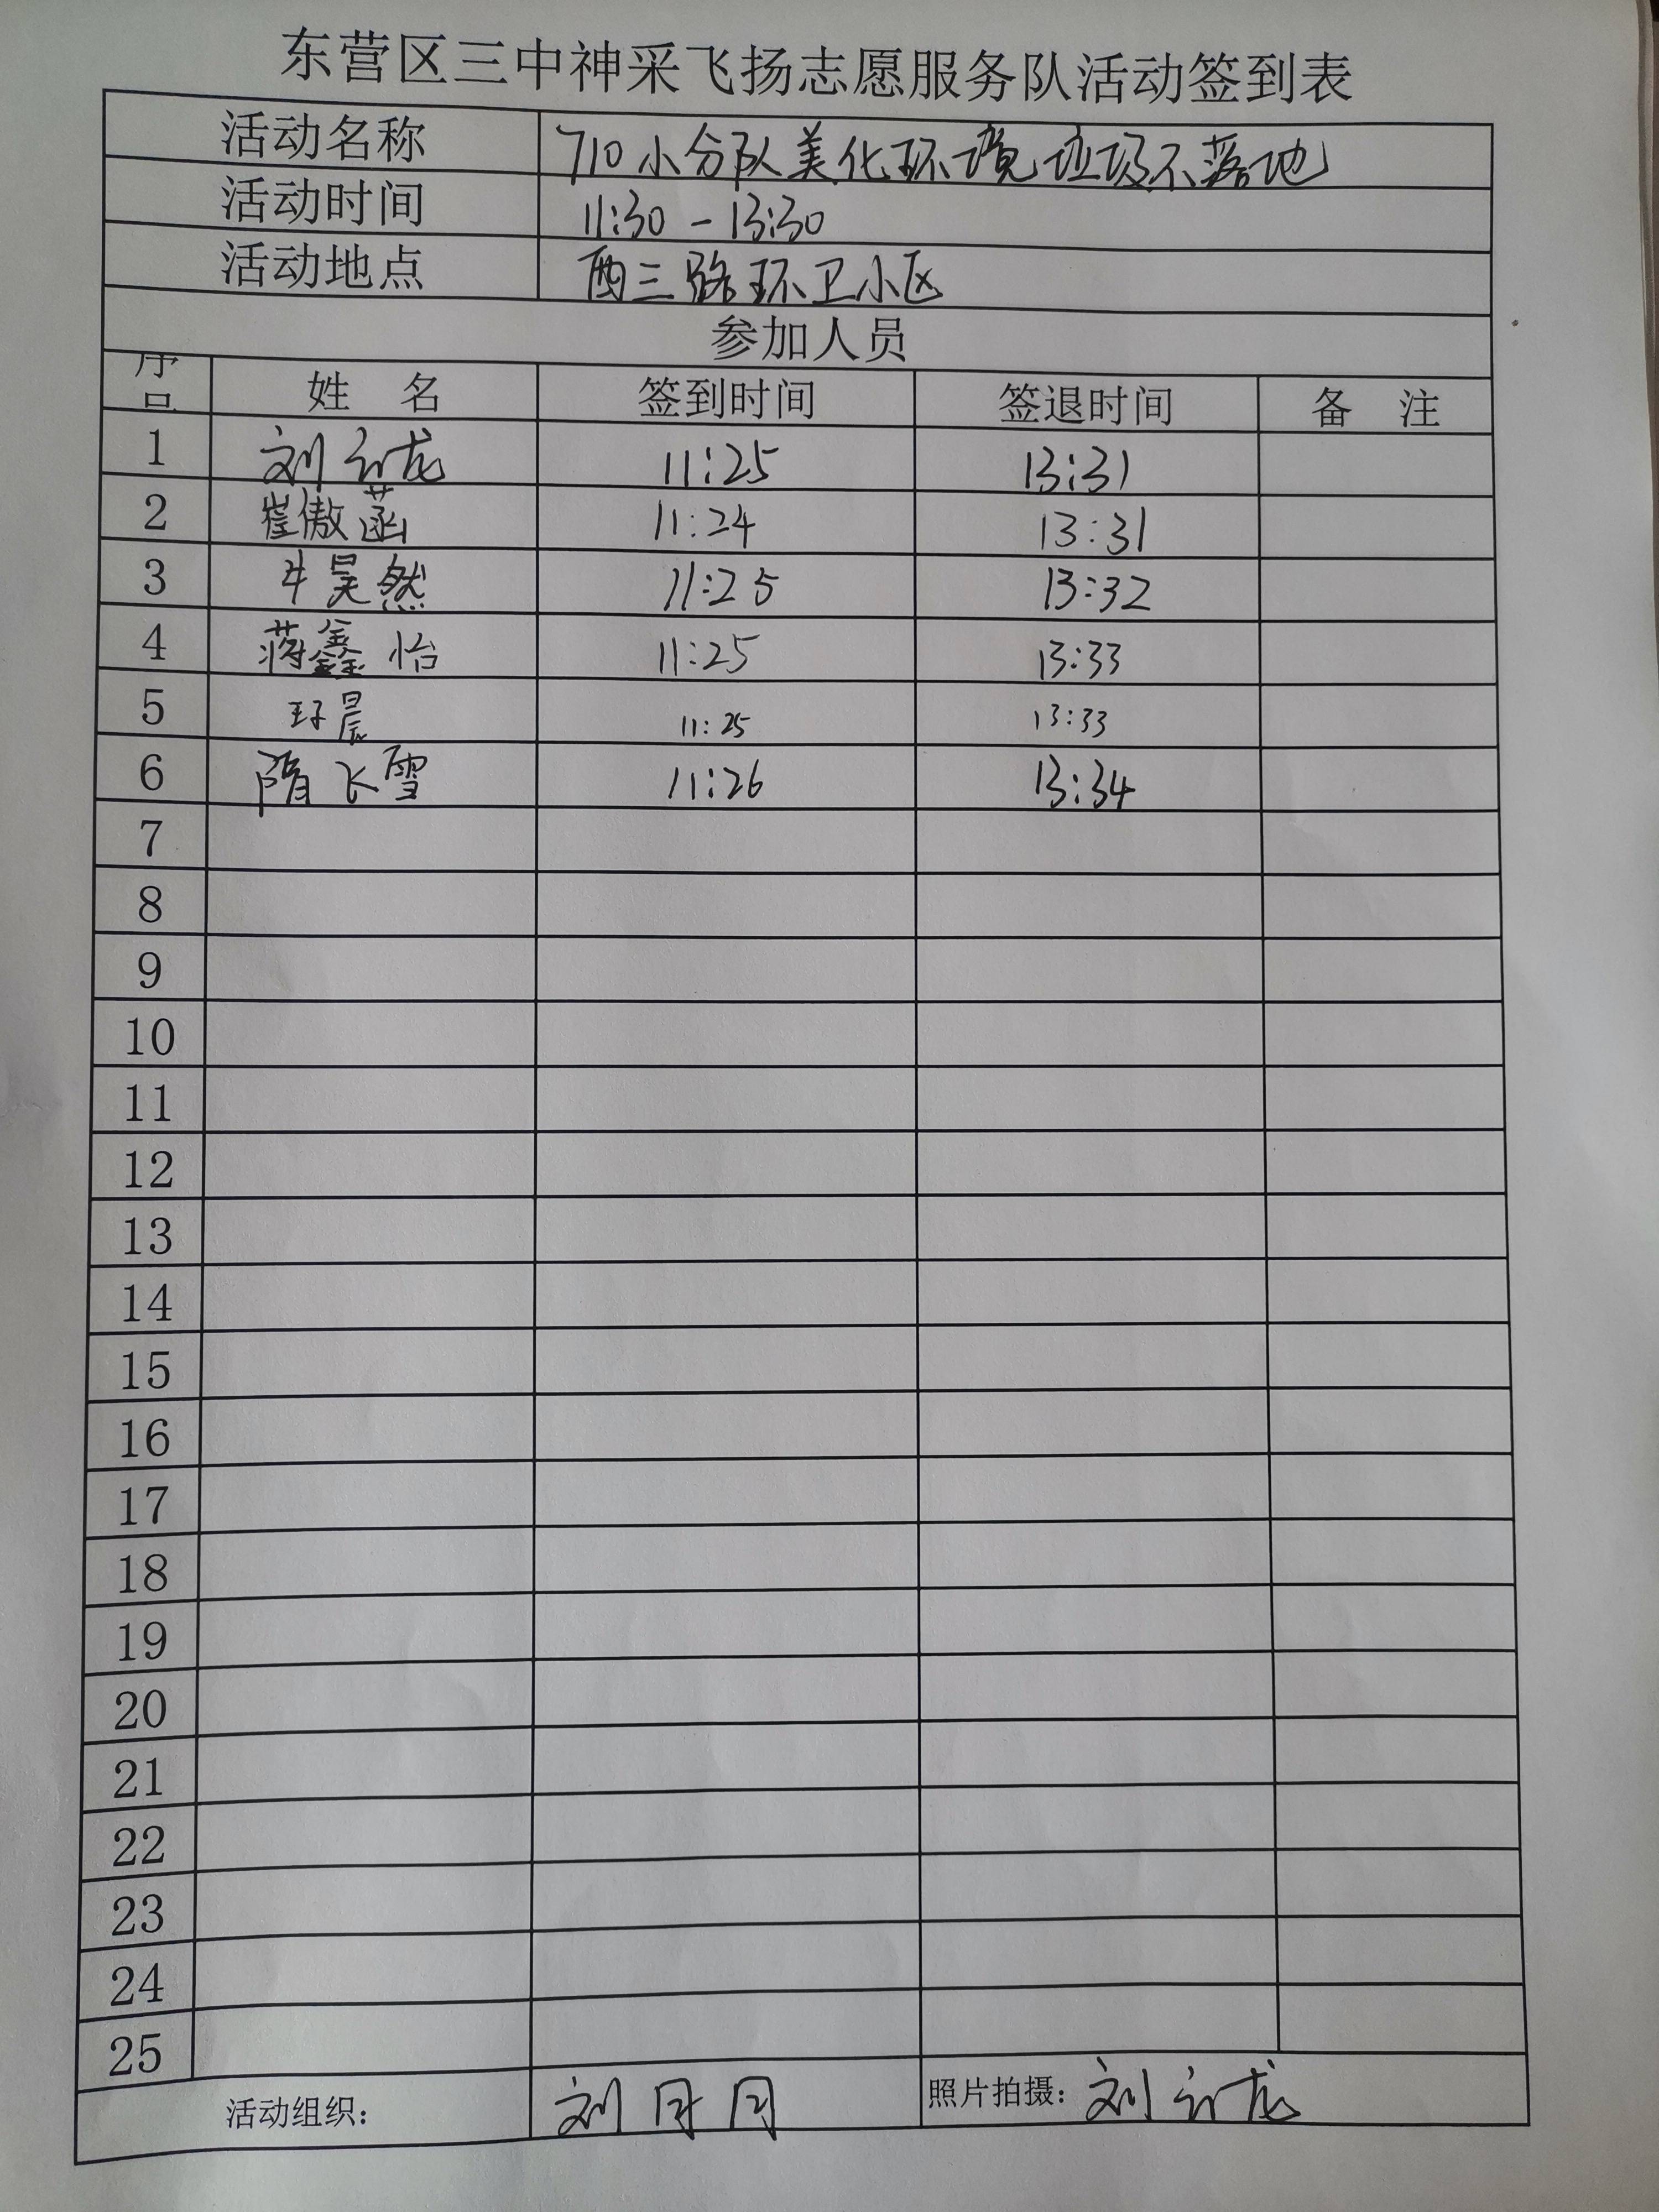 东营区三中神采飞扬志愿服务队活动签到表
活动名称 710小分队美化环境垃圾不落地
活动时间 11:30-13:30
活动地点 西三路环卫小区
参加人员
序号 姓 名 签到时间 签退时间 备 注
1 刘 龙 11:25 13:31
2 崔傲菡 11:24 13:31
3 牛昊然 11:25 13:32
4 蒋鑫怡 11:25 13:33
5 晨 11:25 13:33
6 隋飞雪 11:26 13:34
7
8
9
10
11
12
13
14
15
16
17
18
19
20
21
22
23
24
25
活动组织: 刘月月 照片拍摄: 刘 龙